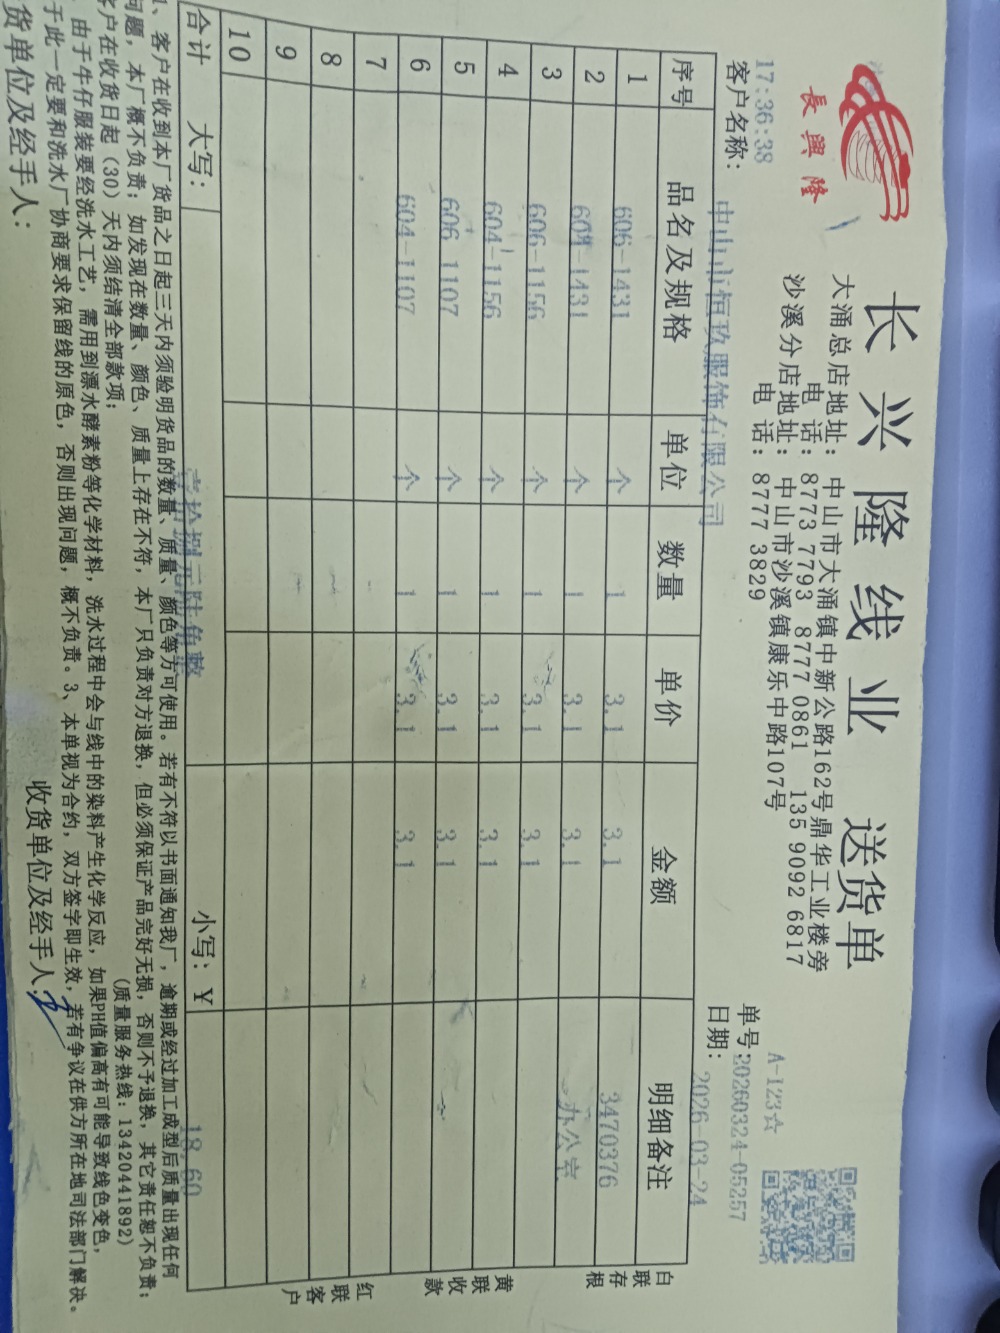 長興隆
长兴隆线业 送货单
大涌总店地址：中山市大涌镇中新公路162号鼎华工业楼旁
电话：8773 7793 8777 0861 135 9092 6817
沙溪分店地址：中山市沙溪镇康乐中路107号
电话：8777 3829
A-123☆
17:36:38
单号：20260324-05257
客户名称：中山市恒玖服饰有限公司
日期：2026-03-24
序号 品名及规格 单位 数量 单价 金额 明细备注
1 606-1431 个 1 3.1 3.1 3470376
2 604-1431 个 1 3.1 3.1 办公室
3 606-1156 个 1 3.1 3.1
4 604-1156 个 1 3.1 3.1
5 606 1107 个 1 3.1 3.1
6 604-1107 个 1 3.1 3.1
7
8
9
10
合计 大写：壹拾捌元陆角整 小写：￥ 18.60
白联存根
黄联收款
红联客户
1、客户在收到本厂货品之日起三天内须验明货品的数量、质量、颜色等方可使用。若有不符以书面通知我厂，逾期或经过加工成型后质量出现任何
问题，本厂概不负责；如发现在数量、颜色、质量上存在不符，本厂只负责对方退换，但必须保证产品完好无损，否则不予退换，其它责任恕不负责；
客户在收货日起（30）天内须结清全部款项；
（质量服务热线：13420441892）
由于牛仔服装要经洗水工艺，需用到漂水酵素粉等化学材料，洗水过程中会与线中的染料产生化学反应，如果PH值偏高有可能导致线色变色，
于此一定要和洗水厂协商要求保留线的原色，否则出现问题，概不负责。3、本单视为合约，双方签字即生效，若有争议在供方所在地司法部门解决。
货单位及经手人：
收货单位及经手人：